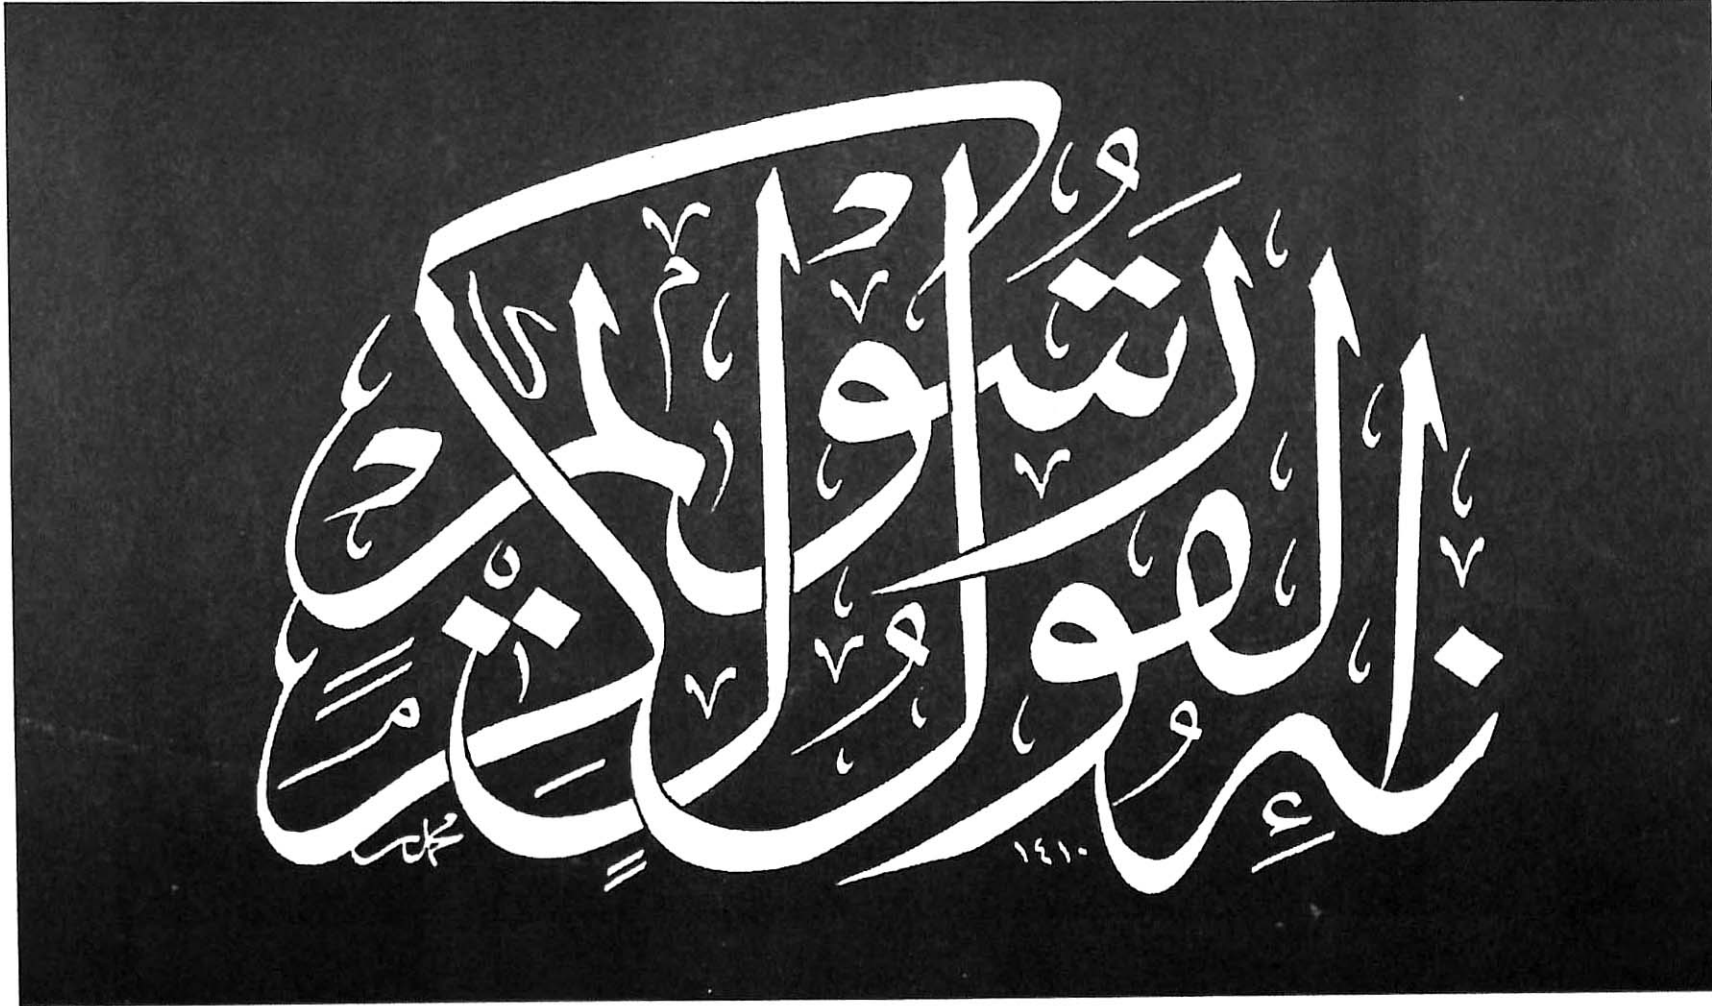 إنه لقول رسول كريم
١٤١٠